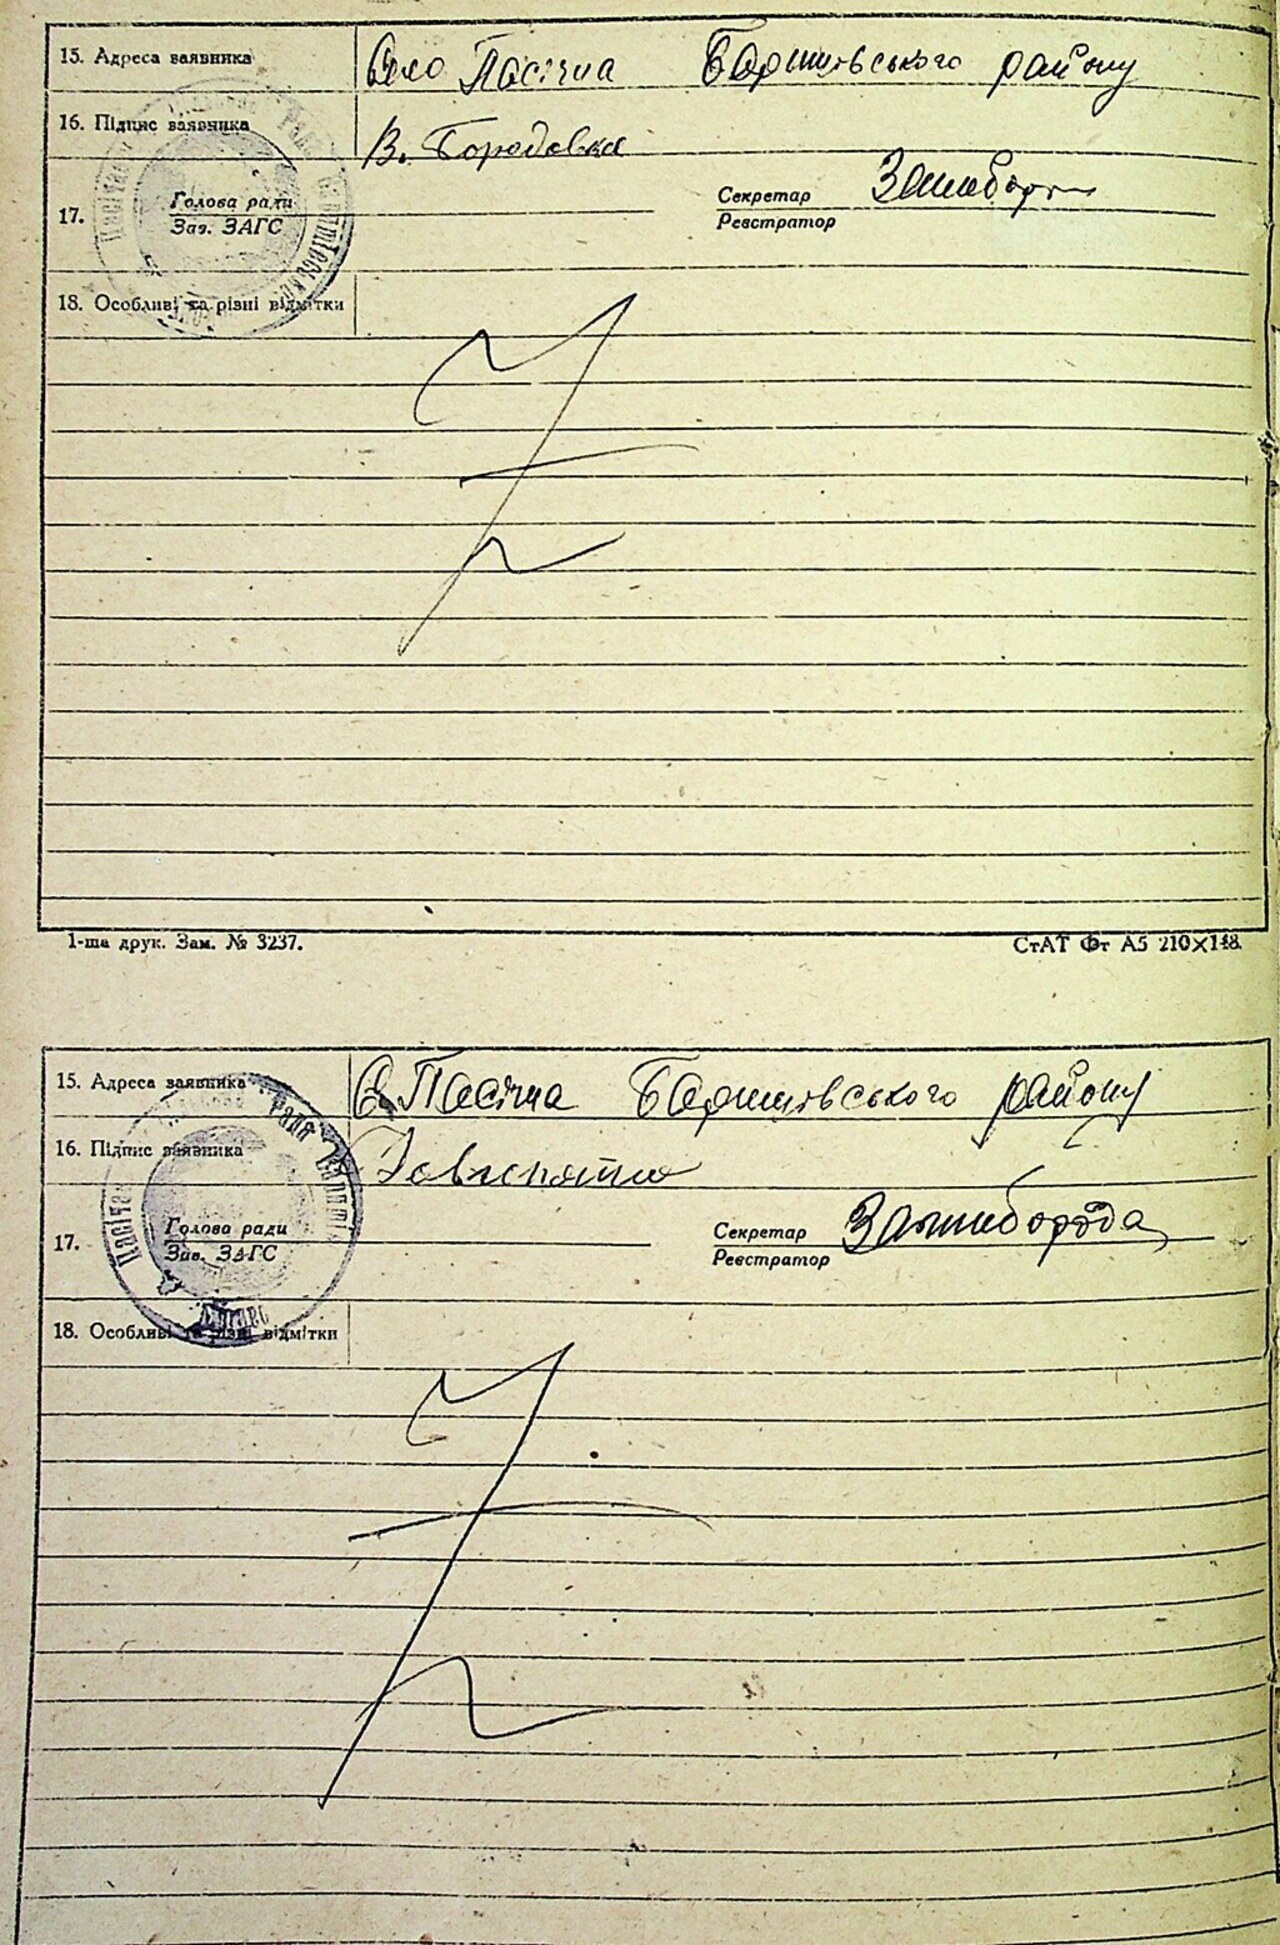 15. Адреса заявника Село Пасічна Баришівського району
16. Підпис заявника В. Бородавка
17. Голова ради Секретар
Зав. ЗАГС Реєстратор
18. Особливі та різні відмітки
1-ша друк. Зам. № 3237. СтАТ Фт А5 210×148.
15. Адреса заявника С. Пасічна Баришівського району
16. Підпис заявника
17. Голова ради Секретар
Зав. ЗАГС Реєстратор
18. Особливі та різні відмітки